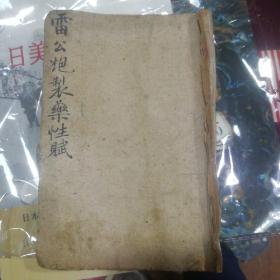 雷公炮製藥性賦
日美
日本